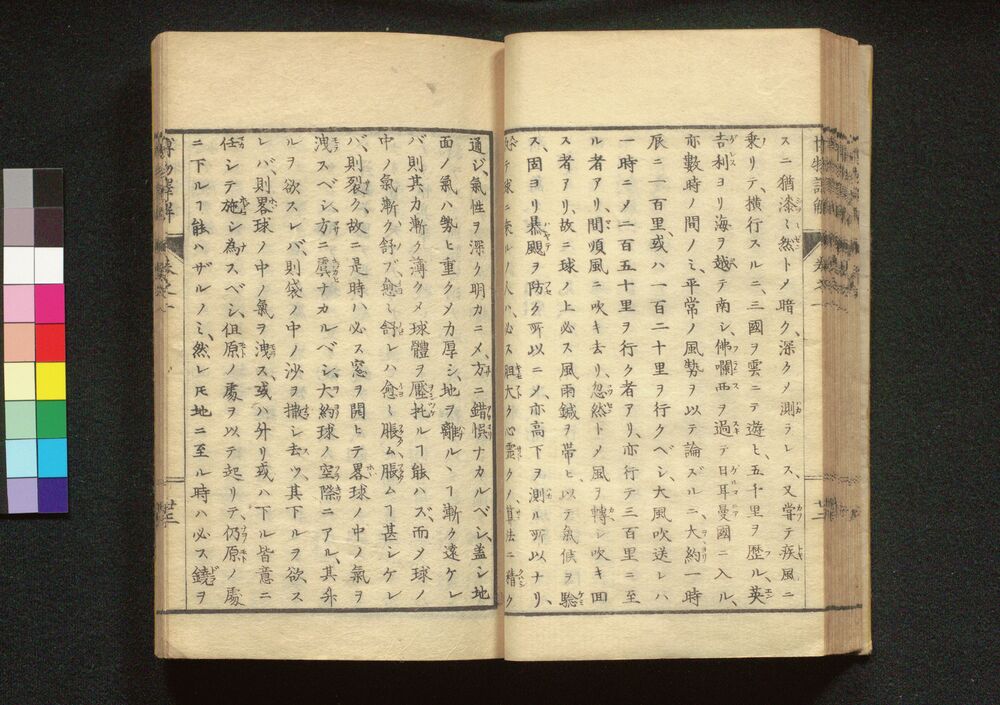 スニ猶漆ミ然トメ暗ク、深クメ測ラレス又嘗テ疾風ニ
乗リテ、横行スルニ、三國ヲ雲ニテ遊ヒ、五千里ヲ歴ル、英
吉利ヨリ海ヲ越テ南シ、佛蘭西ヲ過テ日耳曼國ニ入ル、
亦數時ノ間ノミ、平常ノ風勢ヲ以テ論ズルニ、大約一時
辰ニ一百里、或ハ一百二十里ヲ行クベシ大風吹送レハ
一時ニメ二百五十里ヲ行ク者アリ、亦行テ三百里ニ至
ル者アリ、間順風ニ吹キ去リ、忽然トメ風ヲ轉シ吹キ回
ス者アリ、故ニ球ノ上必ス風雨鍼ヲ帶ヒ、以テ氣候ヲ驗
ス、固ヨリ暴颶ヲ防ク所以ニメ、亦高下ヲ測ル所以ナリ、
テ球ニ乘ルノ人ハ、必ス膽大ク心靈クメ、算法ニ精ク
通ジ、氣性ヲ深ク明カニメ、方ニ錯悞ナカルベシ、蓋シ地
面ノ氣ハ勢ヒ重クメ力厚シ、地ヲ離ルヽヿ漸ク遠ケレ
バ則其力漸ク薄クメ球體ヲ壓托ルヿ能ハズ、而メ球ノ
中ノ氣漸ク舒ブ愈ミ舒レハ愈ミ脹ム脹ムヿ甚シケレ
バ、則裂ク、故ニ是時ハ必ス窓ヲ開ヒテ畧球ノ中ノ氣ヲ
洩スベシ、方ニ虞ナカルベシ、大約球ノ空際ニアル、其升
ルヲ欲スレバ、則袋ノ中ノ沙ヲ撒シ去ツ、其下ルヲ欲ス
レバ、則畧球ノ中ノ氣ヲ洩ス、或ハ升リ或ハ下ル皆意ニ
任シテ施シ為スベシ、但原ノ處ヲ以テ起リテ、仍原ノ處
ニ下ルヿ能ハザルノミ、然レ𪜈地ニ至ル時ハ必ス鐃ヲ